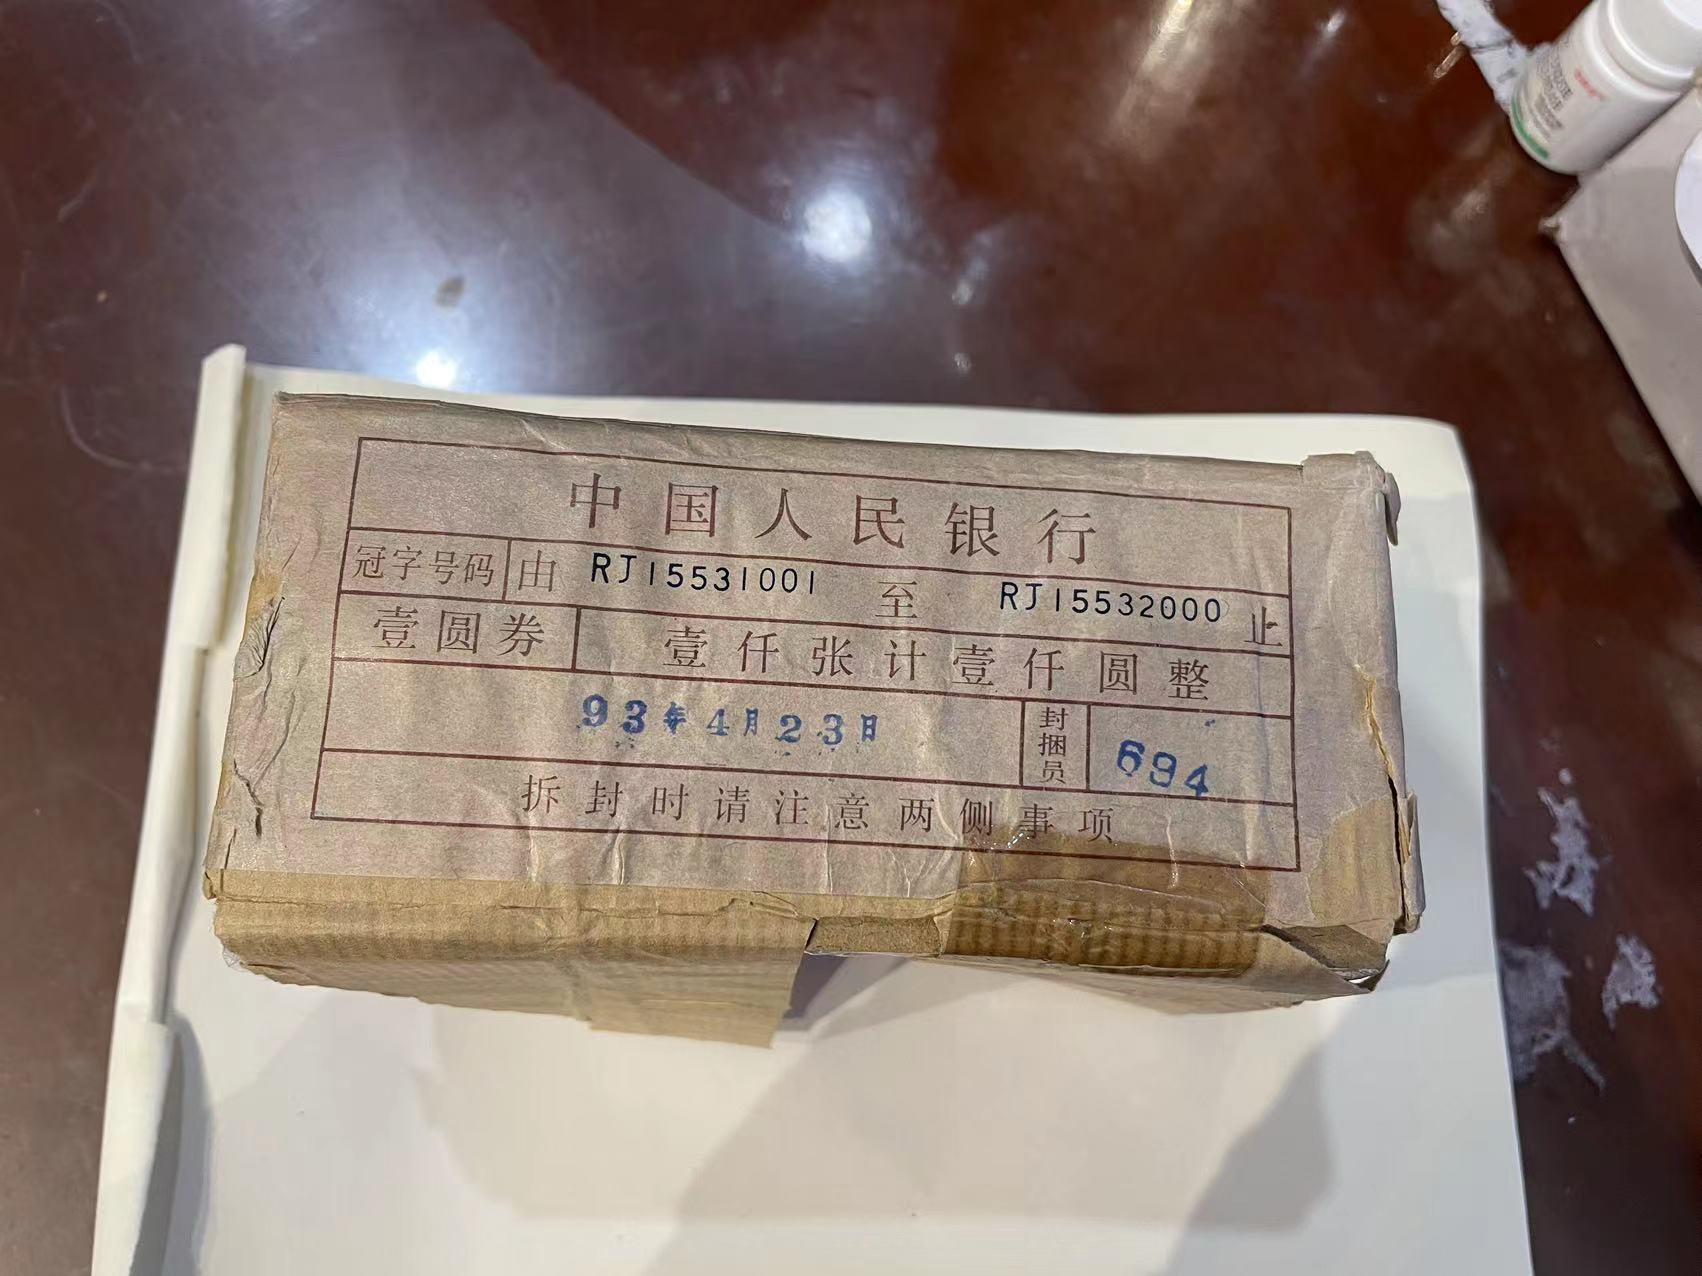 中国人民银行
冠字号码 由 RJ15531001 至 RJ15532000 止
壹圆券 壹仟张计壹仟圆整
93年4月23日 封捆员 694
拆封时请注意两侧事项